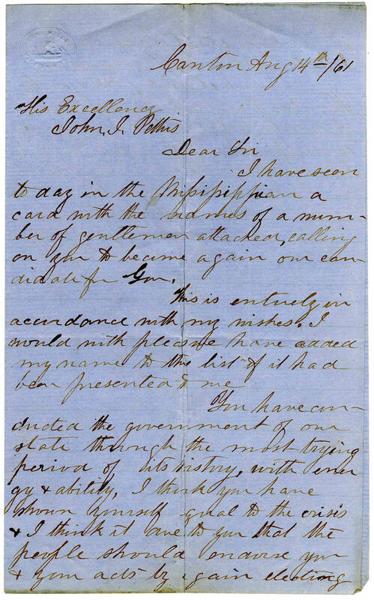 Canton Aug 14th/61
His Excellency
John J. Pettus
Dear Sir
I have seen
to day in the Missipippian a
card with the names of a num-
ber of gentlemen attached, calling
on you to become again our can
didate for Gov.
This is entirely in
accordance with my wishes. I
would with pleasure have added
my name to the list if it had
been presented to me
You have con-
ducted the government of our
state through the most trying
period of its history, with ener
gy & ability, I think you have
shown yourself equal to the crisis
& I think it due to you that the
people should endorse you
& your acts by again electing